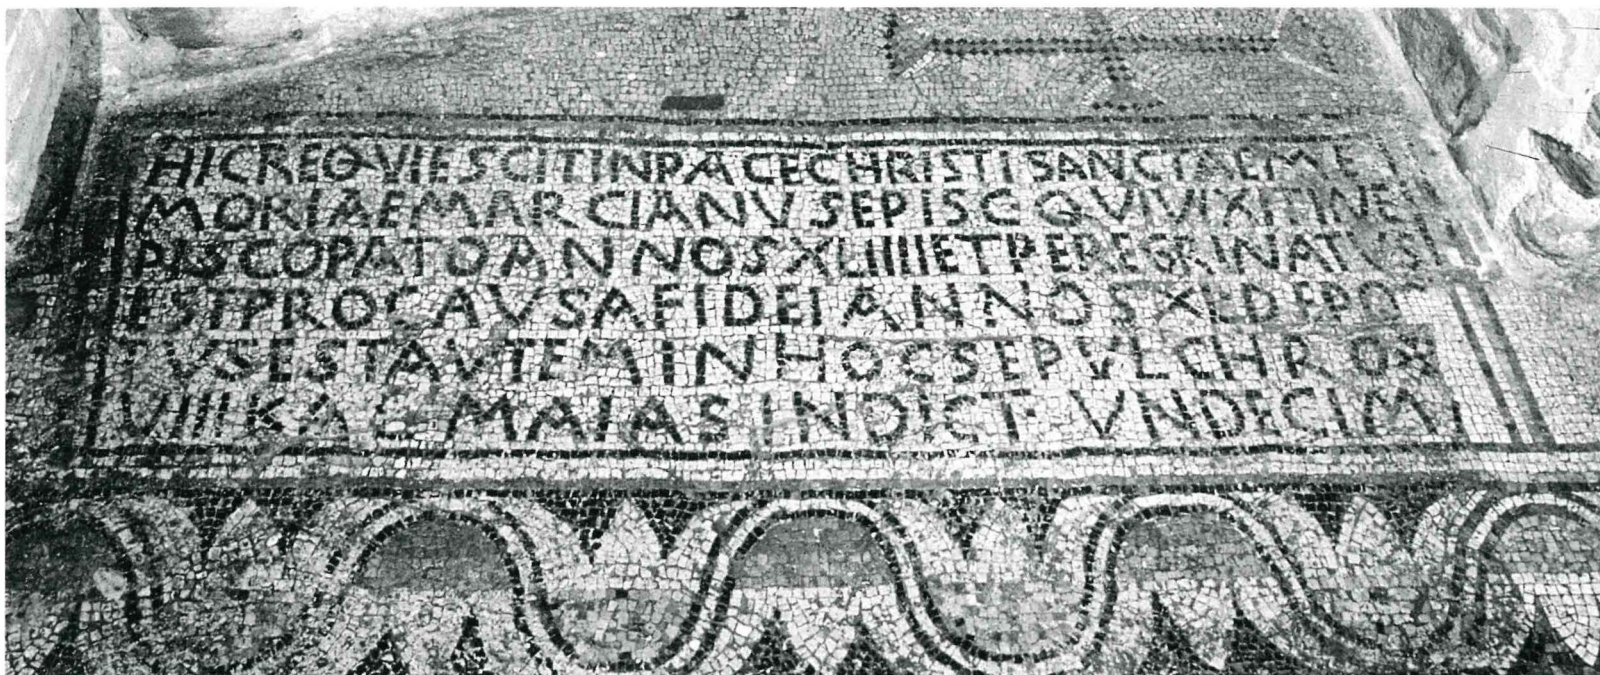 HIC REQVIESCIT IN PACE CHRISTI SANCTAE ME
MORIAE MARCIANVS EPISC QVI VIXIT IN E
PISCOPATO ANNOS XLIIII ET PEREGRINATVS
EST PRO CAVSA FIDEI ANNOS XL DEPO
TVS EST AVTEM IN HOC SEPVLCHRO X
VIII KAL MAIAS INDICT VNDECIM